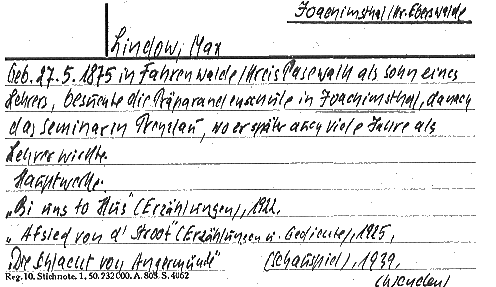 Joachimsthal/Kr. Eberswalde
Lindow, Max
Geb. 27.5.1875 in Fahrenwalde/Kreis Pasewalk als Sohn eines
Lehrers, besuchte die Präparandenschule in Joachimsthal, danach
das Seminar in Prenzlau, wo er später auch viele Jahre als
Lehrer wirkte.
Hauptwerke:
„Bi uns to Hus" (Erzählungen), 1922,
„Afsied von d' Stroot" (Erzählungen u. Gedichte), 1925,
„Die Schlacht von Angermünde" (Schauspiel), 1939,
Reg. 10. Stichnote. 1, 50. 732000. A. 803. S. 4062
(wenden)